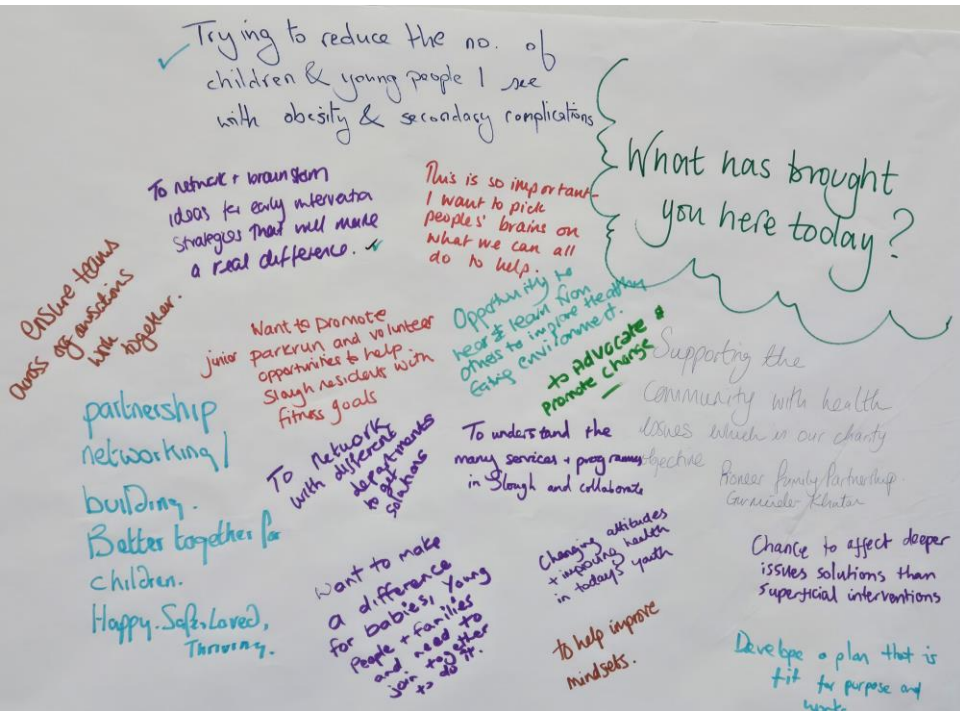 Trying to reduce the no. of
children & young people I see
with obesity & secondary complications
What has brought
you here today?
To network + brainstorm
ideas for early intervention
strategies that will make
a real difference.
This is so important
I want to pick
people's brains on
what we can all
do to help.
ensure teams
across organisations
with
together.
Want to promote
junior parkrun and volunteer
opportunities to help
Slough residents with
fitness goals
Opportunity to
hear & learn from
others to improve Healthy
Eating environment.
to ADVOCATE &
promote change
Supporting the
community with health
issues which is our charity
objective
Pioneer Family Partnership
partnership
networking/
building.
Better together for
children.
Happy. Safe. Loved,
Thriving.
To Network
with different
departments
to get
solutions
To understand the
many services + programmes
in Slough and collaborate
want to make
a difference
for babies, young
people + families
and need to
join together
to do it.
Changing attitudes
+ improving health
in today's youth
to help improve
mindsets.
Chance to affect deeper
issues solutions than
superficial interventions
Develope a plan that is
fit for purpose and